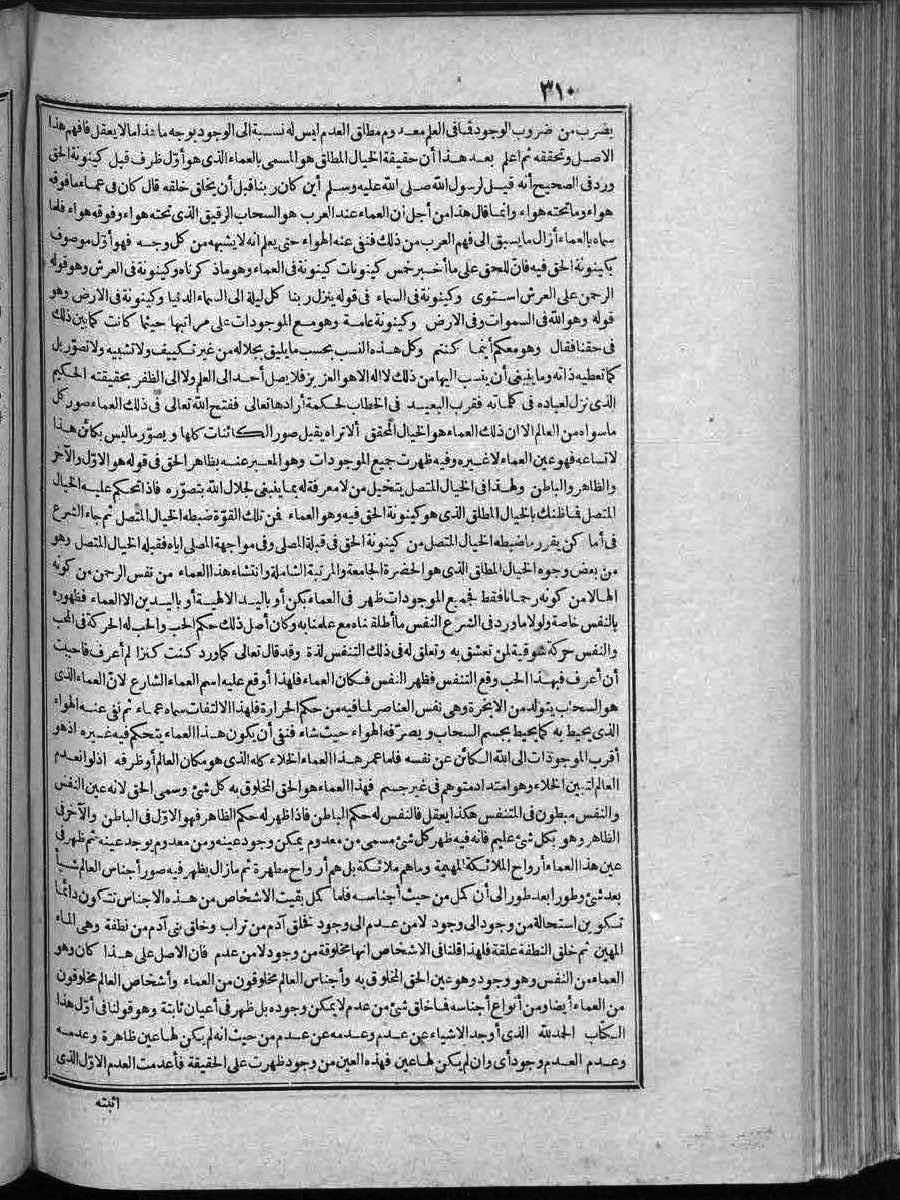 ٣١٠
بضرب من ضروب الوجود فما في العلم معدوم مطلق العدم ليس له نسبة الى الوجود بوجه ما هذا ما لا يعقل فافهم هذا
الاصل وتحققه ثم اعلم بعد هذا أن حقيقة الخيال المطلق هو المسمى بالعماء الذى هو أوّل ظرف قبل كينونة الحق
ورد فى الصحيح أنه قيل لرسول الله صلى الله عليه وسلم أين كان ربنا قبل أن يخلق خلقه قال كان فى عماء ما فوقه
هواء وما تحته هواء وانما قال هذا من أجل ان العماء عند العرب هو السحاب الرقيق الذى تحته هواء وفوقه هواء فلما
سماه بالعماء أزال ما يسبق الى فهم العرب من ذلك فنفى عنه الهواء حتى يعلم انه لا يشبهه من كل وجه فهو أوّل موصوف
بكينونة الحق فيه فان للحق على ما أخبر خمس كينونات كينونة فى العماء وهو ماذكرناه وكينونة فى العرش وهو قوله
الرحمن على العرش استوى وكينونة فى السماء فى قوله ينزل ربنا كل ليلة الى السماء الدنيا وكينونة فى الارض وهو
قوله وهو الله فى السموات وفى الارض وكينونة عامة وهو مع الموجودات على مراتبها حيثما كانت كما بين ذلك
فى حقنا فقال وهو معكم أينما كنتم وكل هذه النسب بحسب ما يليق بجلاله من غير تكييف ولا تشبيه ولا تصوّر بل
كما تعطيه ذاته وما ينبغى أن ينسب اليها من ذلك لا اله الا هو العزيز فلا يصل أحد الى العلم ولا الى الظفر بحقيقته الحكيم
الذى نزل لعباده فى كلماته فقرب البعيد فى الخطاب لحكمة أرادها تعالى ففتح الله تعالى فى ذلك العماء صور كل
ماسواه من العالم الا ان ذلك العماء هو الخيال المحقق ألا تراه يقبل صور الكائنات كلها ويصوّر ما ليس بكائن هذا
لاتساعه فهو عين العماء لا غيره وفيه ظهرت جميع الموجودات وهو المعبر عنه بظاهر الحق فى قوله هو الاوّل والآخر
والظاهر والباطن ولهذا فى الخيال المتصل يتخيل من لا معرفة له بما ينبغى لجلال الله بتصوّره فاذا تحكم عليه الخيال
المتصل فما ظنك بالخيال المطلق الذى هو كينونة الحق فيه وهو العماء فمن تلك القوّة ضبطه الخيال المتصل ثم جاء الشرع
فى أما كن يقرر ما ضبطه الخيال المتصل من كينونة الحق فى قبلة المصلى وفى مواجهة المصلى اياه فقبله الخيال المتصل وهو
من بعض وجوه الخيال المطلق الذى هو الحضرة الجامعة والمرتبة الشاملة وانتشاء هذا العماء من نفس الرحمن من كونه
الها لا من كونه رحمانا فقط فجميع الموجودات ظهر فى العماء بكن أو باليد الالهية أو باليدين الا العماء فظهوره
بالنفس خاصة ولولا ما ورد فى الشرع النفس ما أطلقناه مع علمنا به وكان أصل ذلك حكم الحب والحب له الحركة فى المحب
والنفس حركة شوقية لمن تعشق به وتعلق له فى ذلك التنفس لذة وقد قال تعالى كما ورد كنت كنزا لم أعرف فاحببت
أن أعرف فبهذا الحب وقع التنفس فظهر النفس فكان العماء فلهذا أوقع عليه اسم العماء الشارع لانّ العماء الذى
هو السحاب يتولد من الابخرة وهى نفس العناصر لما فيه من حكم الحرارة فلهذا الالتفات سماه عماء ثم نفى عنه الهواء
الذى يحيط به كما يحيط بجسم السحاب ويصرّفه الهواء حيث شاء فنفى أن يكون هذا العماء يتحكم فيه غيره اذ هو
أقرب الموجودات الى الله الكائن عن نفسه فلما عمر هذا العماء الخلاء كله الذى هو مكان العالم أو ظرفه اذ لو انعدم
العالم لتبين الخلاء وهو امتداد متوهم فى غير جسم فهذا العماء هو الحق المخلوق به كل شئ وسمى الحق لانه عين النفس
والنفس مبطون فى المتنفس هكذا يعقل فالنفس له حكم الباطن فاذا ظهر له حكم الظاهر فهو الاوّل فى الباطن والآخر فى
الظاهر وهو بكل شئ عليم فانه فيه ظهر كل شئ مسمى من معدوم يمكن وجود عينه ومن معدوم يوجد عينه ثم ظهر فى
عين هذا العماء أرواح الملائكة المهيمة وما هم ملائكة بل هم أرواح مطهرة ثم ما زال يظهر فيه صور أجناس العالم شيأ
بعد شئ وطورا بعد طور الى أن كمل من حيث أجناسه فلما كمل بقيت الاشخاص من هذه الاجناس تتكون دائما
تكوين استحالة من وجود الى وجود لا من عدم الى وجود فخلق آدم من تراب وخلق بنى آدم من نطفة وهى الماء
المهين ثم خلق النطفة علقة فلهذا قلنا فى الاشخاص انها مخلوقة من وجود لا من عدم فان الاصل على هذا كان وهو
العماء من النفس وهو وجود وهو عين الحق المخلوق به وأجناس العالم مخلوقون من العماء وأشخاص العالم مخلوقون
من العماء أيضا ومن أنواع أجناسه فما خلق شئ من عدم لا يمكن وجوده بل ظهر فى أعيان ثابتة وهو قولنا فى أوّل هذا
الكتاب الحمد لله الذى أوجد الاشياء عن عدم وعدمه عن عدم من حيث انه لم يكن لها عين ظاهرة وعدمه
وعدم العدم وجود أى وان لم يكن لها عين فهذه العين من وجود ظهرت على الحقيقة فأعدمت العدم الاوّل الذى
اثبته